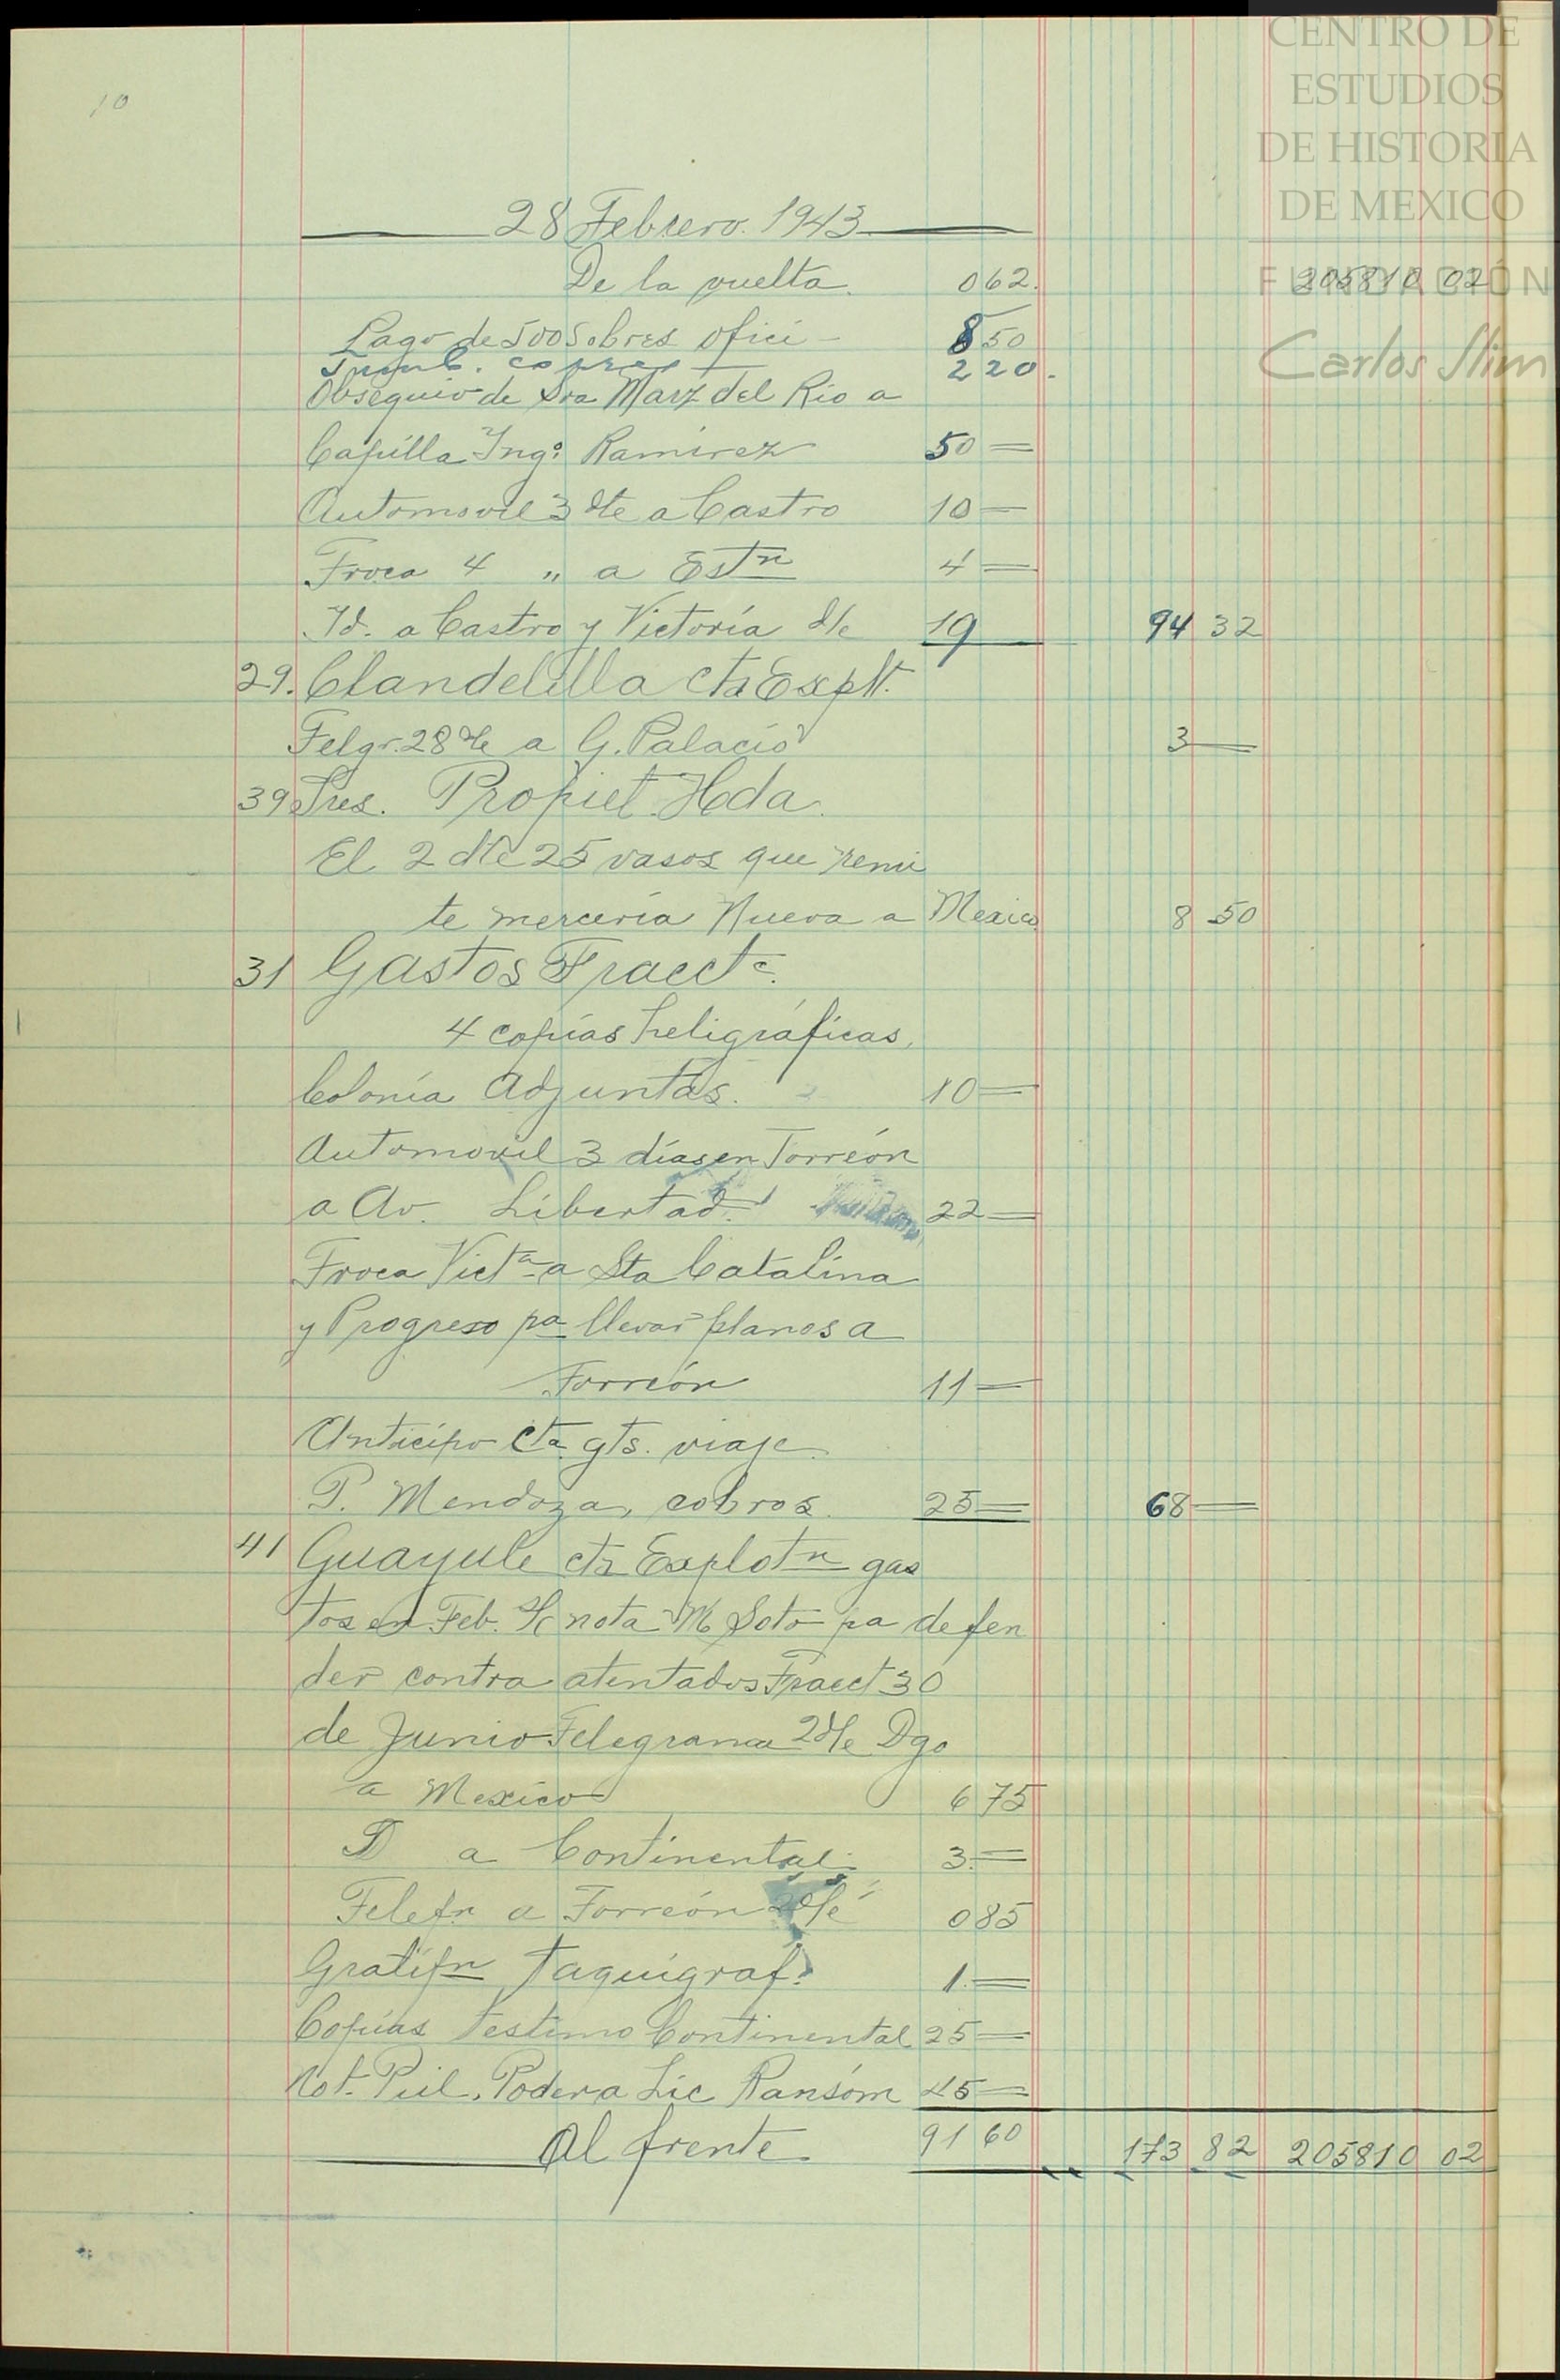 CENTRO DE
ESTUDIOS
DE HISTORIA
DE MEXICO
FUNDACIÓN
Carlos Slim
10
28 Febrero. 1943
De la vuelta. 062. 205810 02
Pago de 500 Sobres ofici- 8 50
220.
Obsequio de Sra Marz del Rio a
Capilla Ing: Ramirez 50 =
Automovil 3 dte a Castro 10 —
Troca 4 " a Estn 4 =
Id. a Castro y Victoría d/e 19 94 32
29. Clandelilla cta Explt.
Telgr. 28 d/e a G. Palacio 3 —
39 Sres. Propiet. Hda.
El 2 dte 25 vasos que remi
te mercería Nueva a Mexico 8 50
31 Gastos Fracct.
4 copías heligráficas,
Colonía Adjuntas. 10 =
Automovil 3 días en Torreón
a Av. Libertad. 22 =
Troca Victa a Sta Catalina
y Progreso pa llevar planos a
Torreón 11 =
Anticipo cta gts. viaje
P. Mendoza, cobros. 25 = 68 =
41 Guayule cta Explotn gas
tos en Feb. s/c nota M Soto pa defen
der contra atentados Fracct 30
de Junio Telegrama 2 d/e Dgo
a Mexico 6 75
D a Continental. 3. =
Telefn a Torreón 085
Gratifn Taquígraf. 1. =
Copías Testimo Continental 25 =
Not. Poder a Lic Ransóm 45 =
Al frente 91 60 173 82 205810 02